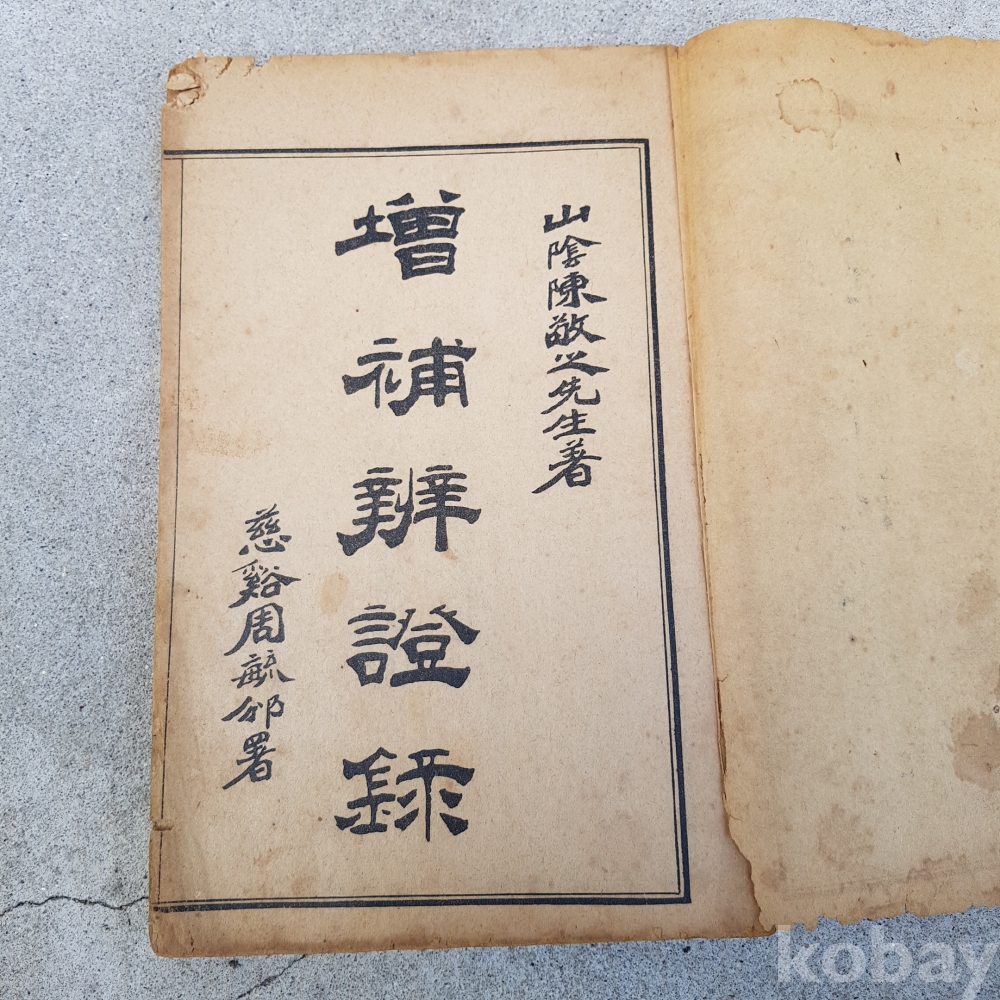 山陰陳敬之先生著
增補辨證錄
慈谿周毓邠署
kobay